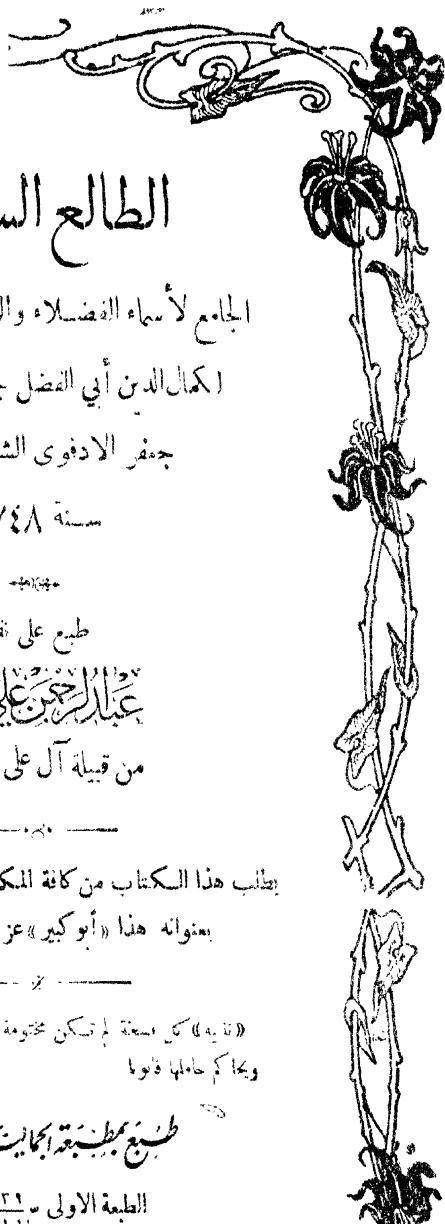 الطالع
الجامع لأسماء الفضلاء
لكمال الدين أبي الفضل
جعفر الادفوى
سنة ٧٤٨
طبع على
عبد الرحمن علي
من قبيلة آل على
يطلب هذا الكتاب من كافة
بعنوانه هذا «أبو كبير»
«تنبيه» كل نسخة لم تكن مختومة
ويحاكم حاملها قانونا
طبع بمطبعة الجمالية
الطبعة الاولى